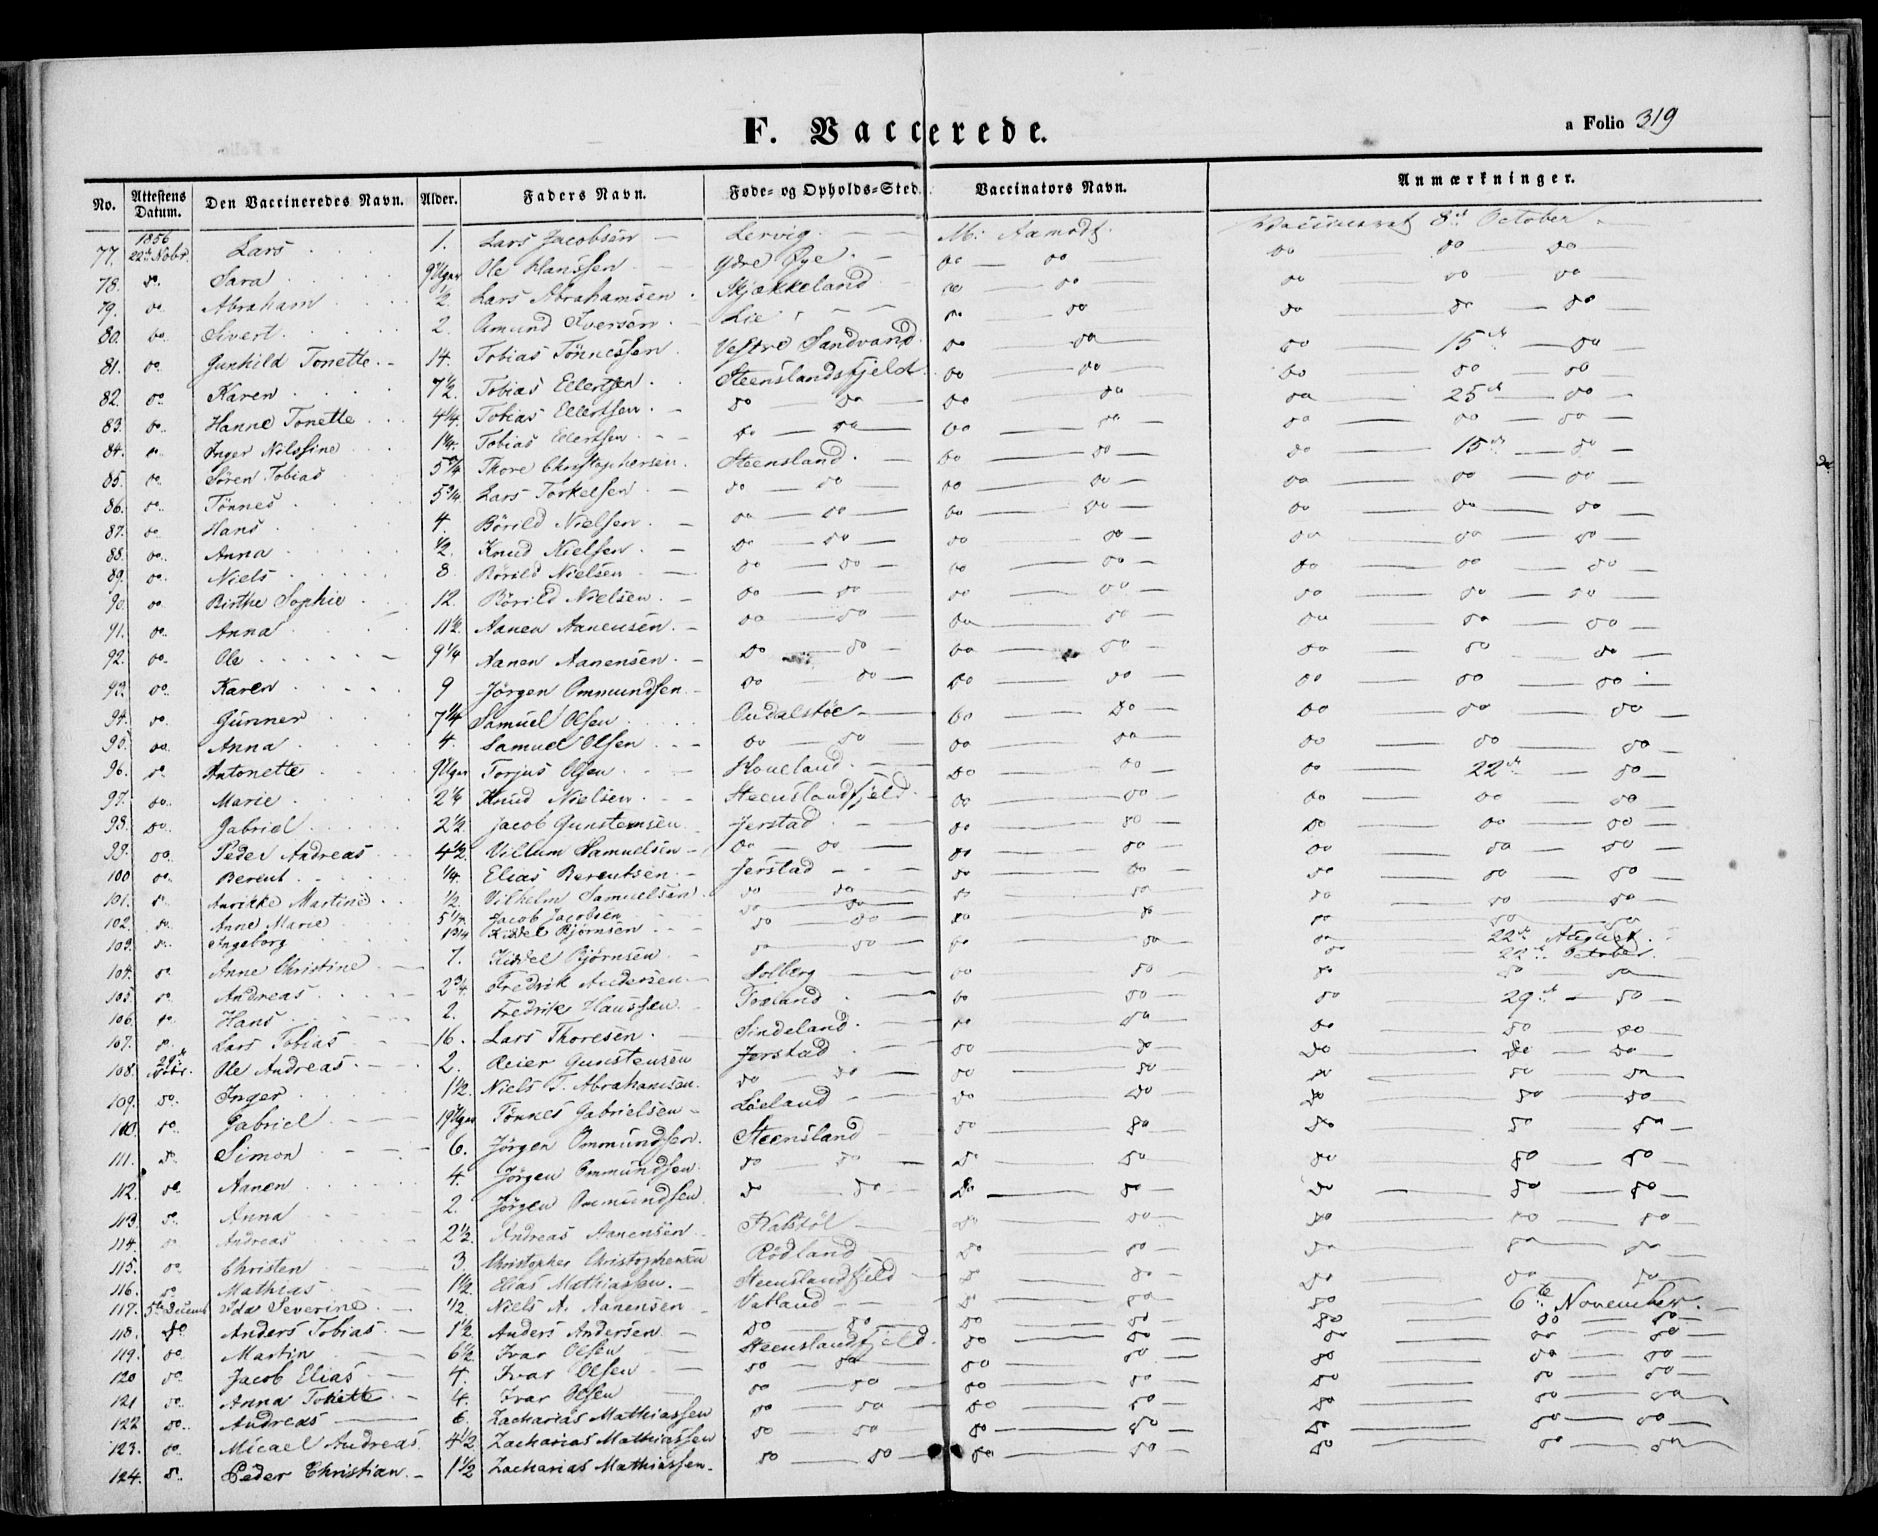 F. Vaccerede.
a Folio 319
No. Attestens Datum. Den Vaccineredes Navn. Alder. Faders Navn. Føde- og Opholds-Sted. Vaccinators Navn. Anmærkninger.
1856
77. 22de Nobr. Lars 1. Lars Jacobsen Lervig M: Aamodt. Vaccineret 8de October
78. do Sara 9 Uger Ole Hanssen Ydre Øye do do do do do
79. do Abraham 1/2 Lars Abrahamsen Skjækkeland do do do do do
80. do Sivert 2. Omund Iversen Lie do do do do do
81. do Gunhild Tonette 14 Tobias Tönnessen Vestre Sandvand do do do 15de do
82. do Karen 7 1/2 Tobias Ellertsen Steenslandsfjeld do do do do do
83. do Hanne Tonette 4 1/4 Tobias Ellertsen do do do do do 25de do
84. do Inger Nilssine 1 1/4 Tobias Ellertsen do do do do do do do
85. do Sören Tobias 5 3/4 Thore Christophersen Steensland do do do 15de do
86. do Tönnes 5 3/4 Lars Torkelsen do do do do do do do
87. do Hans 4. Börild Nielsen do do do do do do do
88. do Anna 1/2 Knud Nielsen do do do do do do do
89. do Niels 8 Börild Nielsen do do do do do do do
90. do Birthe Sophie 12. Börild Nielsen do do do do do do do
91. do Anna 11 1/2 Aanen Aanensen do do do do do do do
92. do Ole 9 1/4 Aanen Aanensen do do do do do do do
93. do Karen 9 Jörgen Ommundsen do do do do do do do
94. do Gunner 7 1/4 Samuel Olsen do do do do do
95. do Anna 4. Samuel Olsen do do do do do do do
96. do Antonette 9 Uger Torjus Olsen do do do 22de do
97. do Marie 2 1/4 Knud Nielsen Steenslandsfjeld do do do do do
98. do Gabriel 2 1/2 Jacob Gunstensen Jerstad do do do do do
99. do Peder Andreas 4 1/2 Villum Samuelsen do do do do do do do
100 do Berent 1/4 Elias Berentsen Jerstad do do do do do
101. do Martine 1/2 Vilhelm Samuelsen do do do do do do do
102. do Anne Marie 5 1/4 Jacob Jacobsen do do do do do do do
103. do Ingeborg 1 3/4 Kiddel Bjørnsen do do do do do 22de August
104. do Anne Christine 7. Kiddel Bjørnsen do do do do do 22de October
105. do Andreas 2 3/4 Fredrik Andersen Solberg do do do do do
106. do Hans 2. Fredrik Hanssen do do do 29de do
107. do Lars Tobias 16. Lars Thoresen Sindeland do do do do do
108. 29de Nobr. Ole Andreas 2. Reier Gunstensen Jerstad do do do do do
109. do Inger 1 1/2 Niels T. Abrahamsen do do do do do do do
110. do Gabriel 19 Uger Tönnes Gabrielsen Löeland do do do do do
111. do Simon 6. Jörgen Ommundsen Steensland do do do do do
112. do Aanen 4. Jörgen Ommundsen do do do do do do do
113. do Anna 2. Jörgen Ommundsen do do do do do do do
114. do Andreas 2 1/2 Andreas Aanensen do do do do do
115. do Christen 3. Christopher Christophersen Rödland do do do do do
116. do Mathias 1 1/2 Elias Mathiassen Steenslandsfjeld do do do do do
117. 5te Decemb Ida Severine 1/2 Niels A. Aanensen Vatland do do do 6te November
118. do Anders Tobias 1 1/2 Anders Andersen do do do do do do do
119. do Martin 6 1/2 Ivar Olsen Steenslandsfjeld do do do do do
120 do Jacob Elias 4. Ivar Olsen do do do do do do do
121 do Anna Tonette 4 Ivar Olsen do do do do do do do
122 do Andreas 6. Zacharias Mathiassen do do do do do do do
123. do Micael Andreas 4 1/2 Zacharias Mathiassen do do do do do do do
124. do Peder Christian 1 1/2 Zacharias Mathiassen do do do do do do do